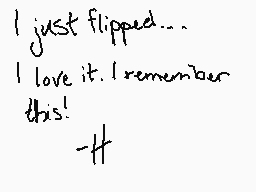 I just flipped...
I love it. I remember
this!
-H